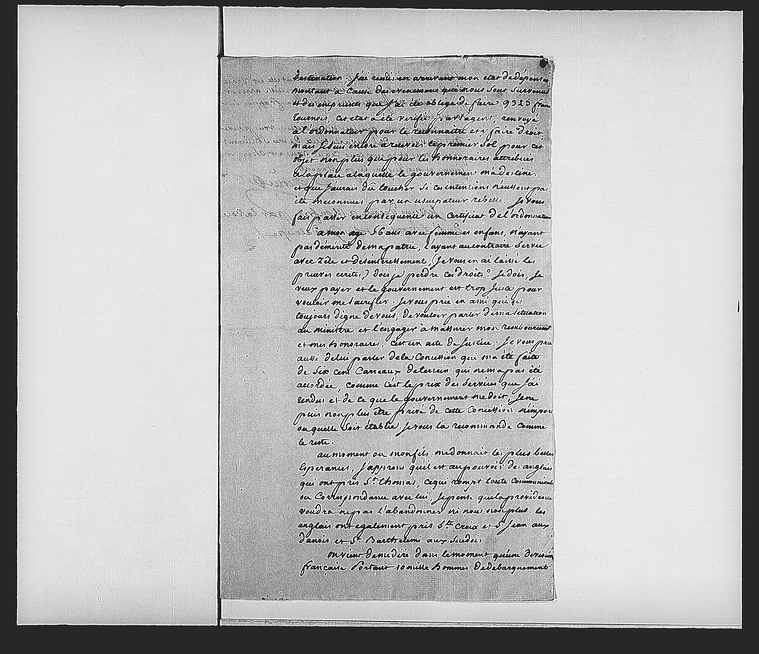 destination. J'ai remis en arrivant mon etat de depense
montant a Cause des evenemens qui nous sont survenus
et des emprunts que j'ai été obligé de faire 9325 fran
tournois, cet etat a été verifié par l'agent, renvoyé
a l'ordonnateur pour le reconnaitre et y faire droit,
mais je suis encore a recevoir le premier sol pour cet
objet non plus que pour les honoraires attribués
a la place a laquelle le gouvernement m'a destiné
et que j'aurais du toucher si ces intentions n'eussent pas
été meconnues par un usurpateur rebelle. Je vous
fais passer en consequence un certificat de l'ordonnateur
a mon age 56 ans avec femme et enfans, n'ayant
pas démérité de ma patrie, l'ayant au contraire servie
avec Zèle et desinteressement, (je vous en ai laissé les
preuves ecrites,) dois je perdre ces droits? Je dois, je
veux payer et le gouvernement est trop juste pour
vouloir me sacrifier. Je vous prie en ami qui est
toujours digne de vous, de vouloir parler de ma situation
au ministre et l'engager a m'assurer mon remboursement
et mes honoraires, c'est un acte de justice; je vous prie
aussi de lui parler de la Concession qui m'a été faite
de Six cens Carreaux de terrein qui ne m'a pas été
accordée, comme c'est le prix des Services que j'ai
rendus et de ce que le gouvernement me doit, je ne
puis non plus être privé de cette Concession n'impor
ou quelle soit etablie je vous la recommande comme
le reste.
au moment ou mon fils me donnait les plus belles
Esperances, j'apprens qu'il est au pouvoir des anglais
qui ont pris St. thomas, ce qui rompt toute Communicat
ou Correspondance avec lui. je pense que la providence
voudra ne pas l'abandonner ni nous non plus. les
anglais ont egalement pris Ste. Croix et St. Jean aux
danois et St. Barthelemi aux Suedois
on vient de me dire dans le moment qu'une division
française Portant 10 mille hommes de debarquement